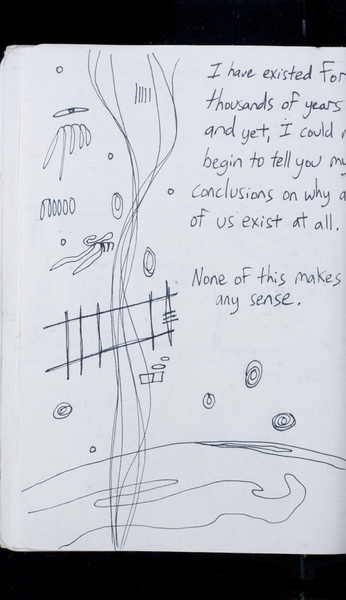 I have existed for
thousands of years
and yet, I could
begin to tell you my
conclusions on why
of us exist at all.
None of this makes
any sense.